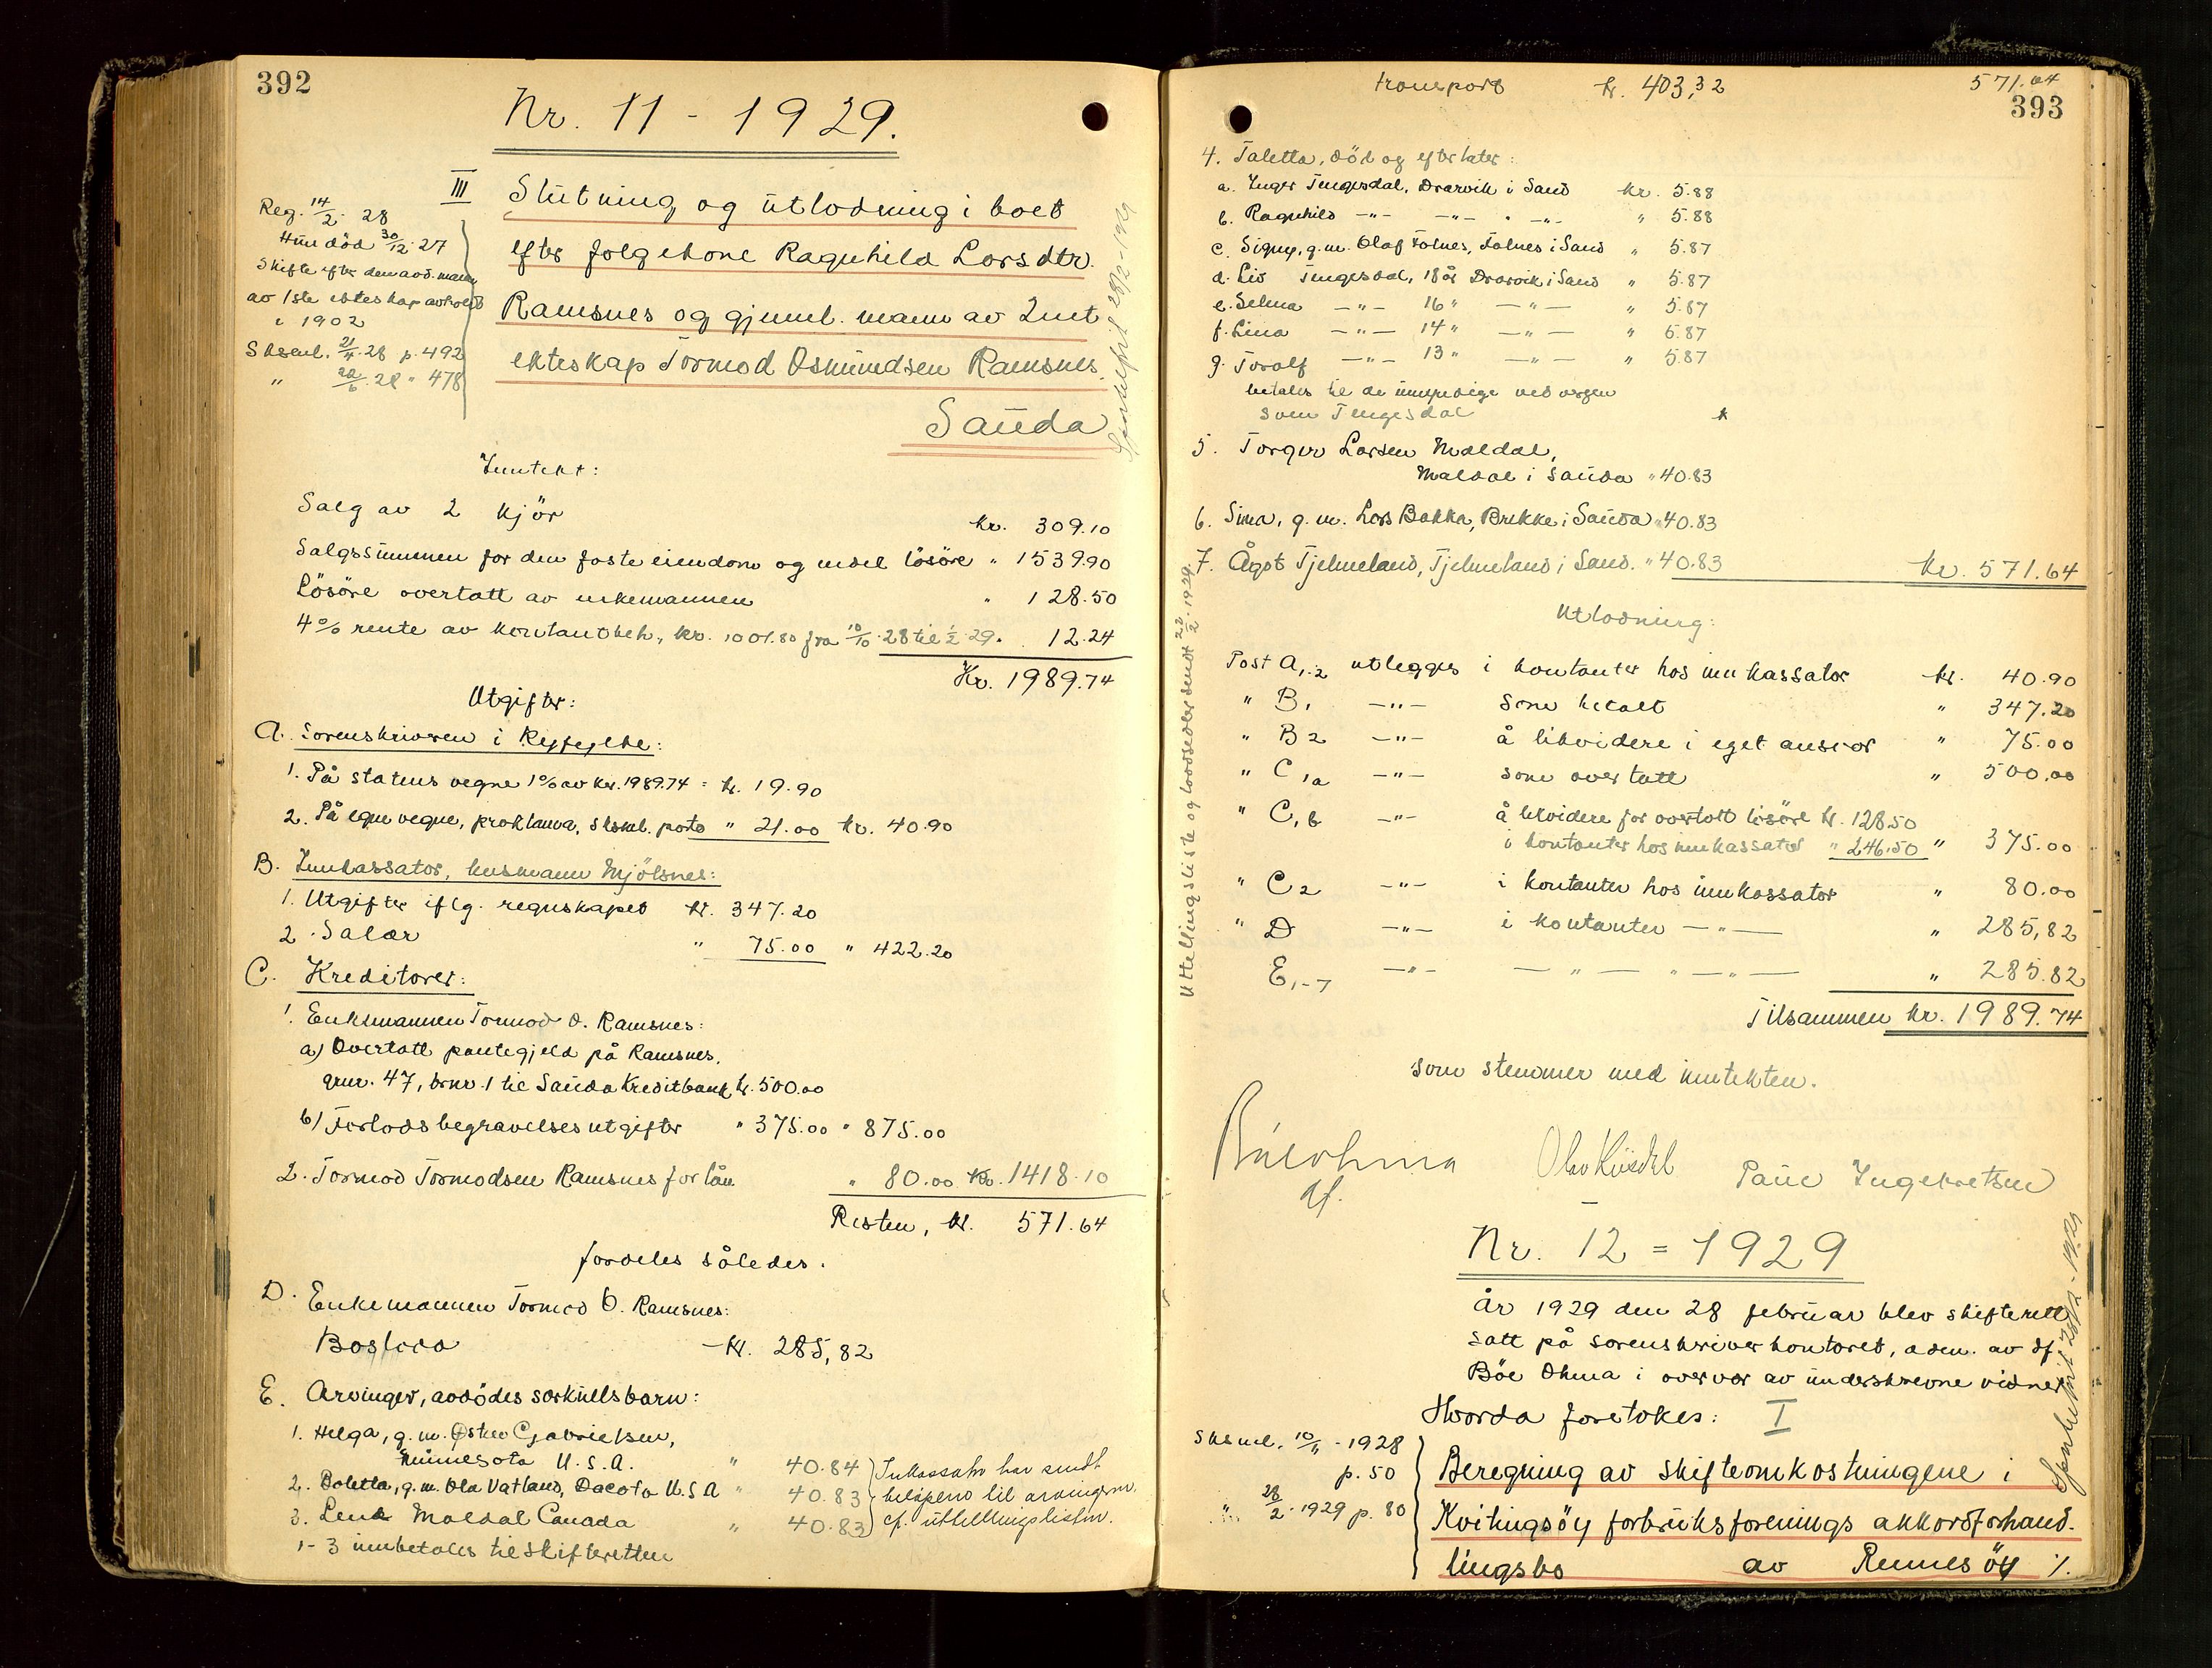 392
Nr. 11 - 1929.
III
Slutning og utlodning i boet
efter folgekone Ragnhild Larsdtr.
Ramsnes og gjenl. mann av 2net
ekteskap Tormod Osmundsen Ramsnes,
Sauda
Reg. 14/2. 28
Hun död 30/12.27
Skifte efter den avd. mann
av 1ste ekteskap avholdt
i 1902
Sksml. 21/4.28 p. 492
" 22/6.28 " 478
Inntekt:
Salg av 2 kjör kr. 309.10
Salgssummen for den faste eiendom og endel lösöre " 1539.90
Lösöre overtatt av enkemannen " 128.50
4% rente av kontantbeh., kr. 1001.80 fra 10/10.28 til 1/2.29. 12.24
Kr. 1989.74
Utgifter:
A. Sorenskriveren i Ryfylke:
1. På statens vegne 1% av kr. 1989.74 = kr. 19.90
2. På egne vegne, proklama, sksml. porto " 21.00 kr. 40.90
B. Innkassator, lensmann Mjölsnes:
1. Utgifter iflg. regnskapet kr. 347.20
2. Salær " 75.00 " 422.20
C. Kreditorer:
1. Enkemannen Tormod O. Ramsnes:
a) Overtatt pantegjeld på Ramsnes,
grnr. 47, brnr. 1 til Sauda Kreditbank kr. 500.00
b) Forlods begravelsesutgifter " 375.00 " 875.00
2. Tormod Tormodsen Ramsnes for lån " 80.00 Kr. 1418.10
Resten, kr. 571.64
fordeles således.
D. Enkemannen Tormod O. Ramsnes:
Boslod kr. 285,82
E. Arvinger, avdödes særkullsbarn:
1. Helga, g.m. Østen Gabrielsen,
Minnesota U.S.A. " 40.84
2. Boletta, g.m. Ola Vatland, Dacota U.S.A " 40.83
3. Lena Maldal Canada " 40.83
Inkassator har sendt
belöpene til arvingerne.
cf. uttellingslisten.
1-3 innbetales til skifteretten
393
transport kr. 403,32 571.64
4. Taletta, död og efterlater:
a. Inger Tengesdal, Drarvik i Sand kr. 5.88
b. Ragnhild -"- -"- " -"- " 5.88
c. Signy, g.m. Olaf Fölnes, Fölnes i Sand " 5.87
d. Liv Tengesdal, 18 år Drarvik i Sand " 5.87
e. Selma -"- 16 " -"- " 5.87
f. Lina -"- 14 " -"- " 5.87
g. Toralf -"- 13 " -"- " 5.87
betales til de umyndige ved vergen
Sven Tengesdal
5. Torger Larsen Maldal,
Maldal i Sauda " 40.83
6. Sina, g.m. Lars Bakka, Brekke i Sauda " 40.83
7. Ågot Tjelmeland, Tjelmeland i Sand. " 40.83 kr. 571.64
Uttellingsliste og loddsedler sendt 22/2. 1929.
Utlodning:
Post A,1-2 utlegges i kontanter hos innkassator kr. 40.90
" B1 -"- som betalt " 347.20
" B2 -"- å likvidere i eget ansvar " 75.00
" C1a -"- som overtatt " 500.00
" C1b -"- å likvidere for overtatt lösöre kr. 128.50
i kontanter hos innkassator " 246.50 " 375.00
" C2 -"- i kontanter hos innkassator " 80.00
" D -"- i kontanter -"- " 285,82
E1-7 -"- -"- " -"- " 285.82
Tilsammen kr. 1989.74
som stemmer med inntekten.
Böe Ohma
df.
Paul Ingebretsen
Nr. 12 = 1929
År 1929 den 28 februar blev skifterett
satt på sorenskriverkontoret, adm. av df.
Böe Ohma i overvær av underskrevne vidner
Hvorda foretokes: I
Sksml. 10/11-1928
p. 50
" 28/2.1929 p. 80
Beregning av skifteomkostningene i
Kvitingsöy forbruksforenings akkordforhand-
lingsbo av Rennesöy ./.